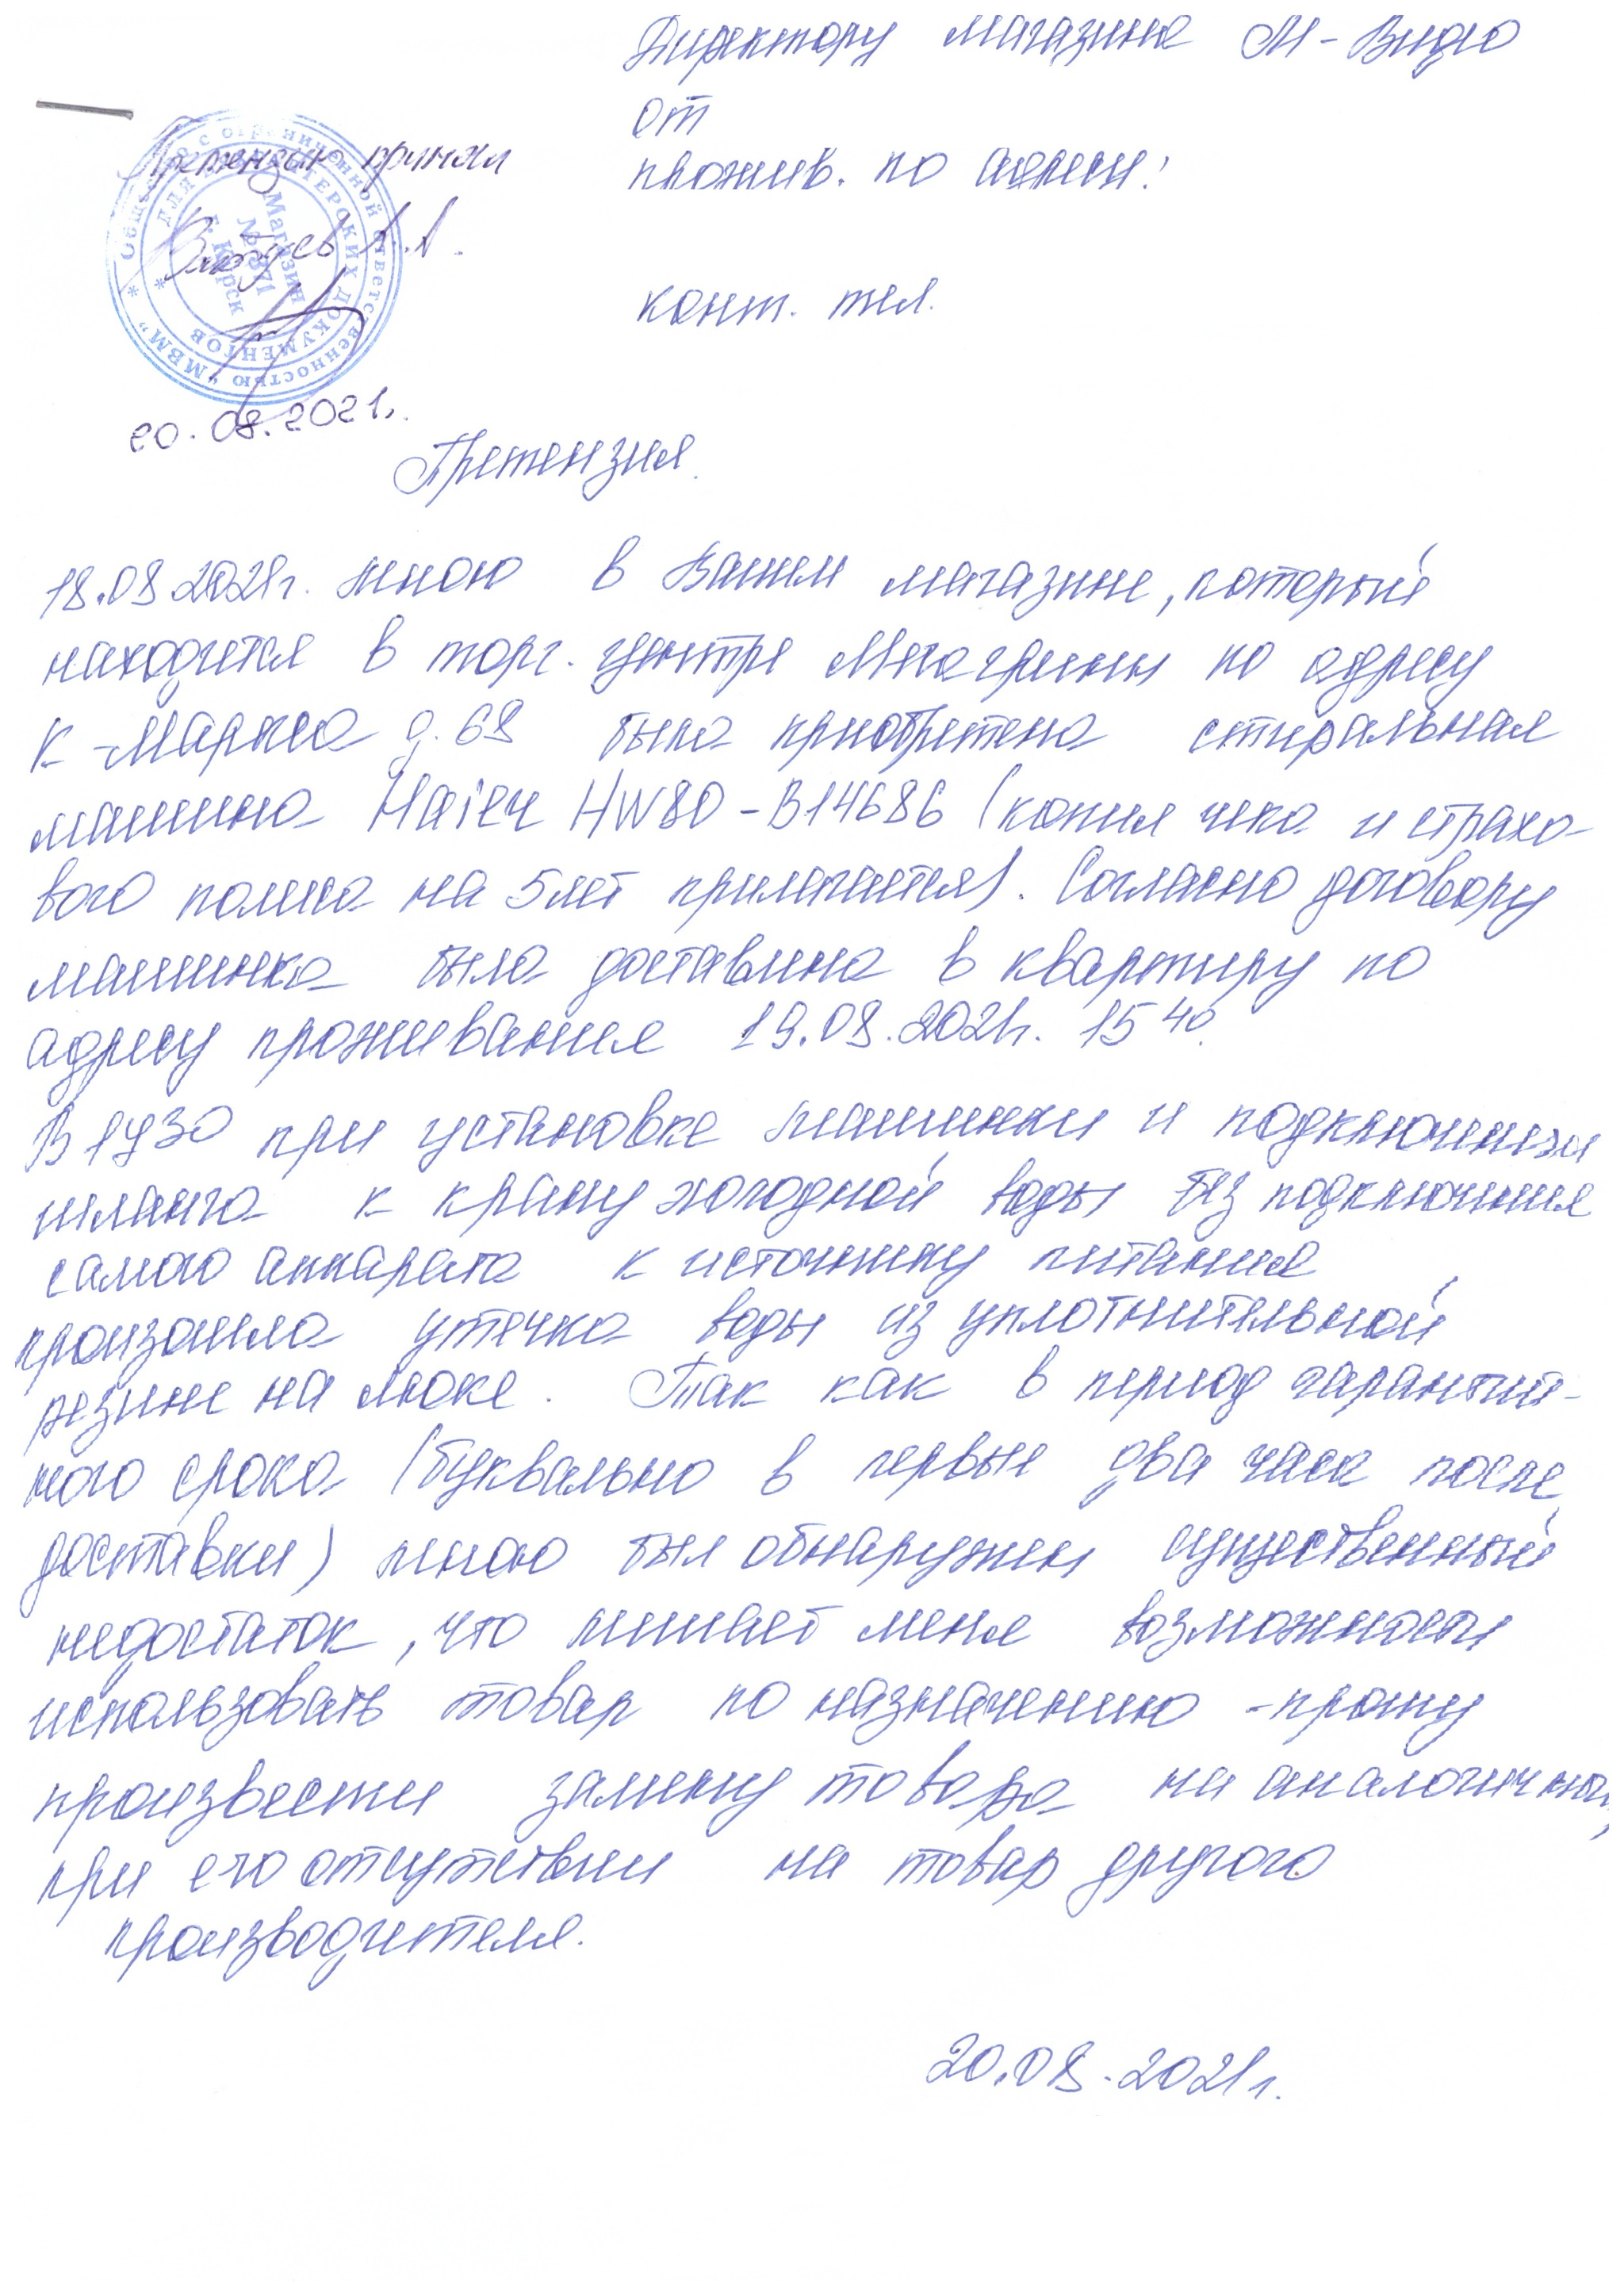 Директору магазина М-Видио
от
прожив. по адресу:
конт. тел.
Претензию принял
А.А.
20.08.2021г.
Общество с ограниченной ответственностью "МВМ"
ДЛЯ БУХГАЛТЕРСКИХ ДОКУМЕНТОВ
Магазин
№ 371
г. Курск
Претензия.
18.08.2021г. мною в Вашем магазине, который
находится в торг. центре Мегагринн по адресу
К-Маркса д. 68 была приобретена стиральная
машина Haier HW80-B14686 (копия чека и страхо-
вого полиса на 5 лет прилагается). Согласно договору
машинка была доставлена в квартиру по
адресу проживания 19.08.2021г. 15 40.
В 17 30 при установке машинки и подключении
шланга к крану холодной воды без подключения
самого аппарата к источнику питания
произошла утечка воды из уплотнительной
резине на люке. Так как в период гарантий-
ного срока (буквально в первые два часа после
доставки) мною был обнаружен существенный
недостаток, что лишает меня возможности
использовать товар по назначению - прошу
произвести замену товара на аналогичный,
при его отсутствии на товар другого
производителя.
20.08.2021г.